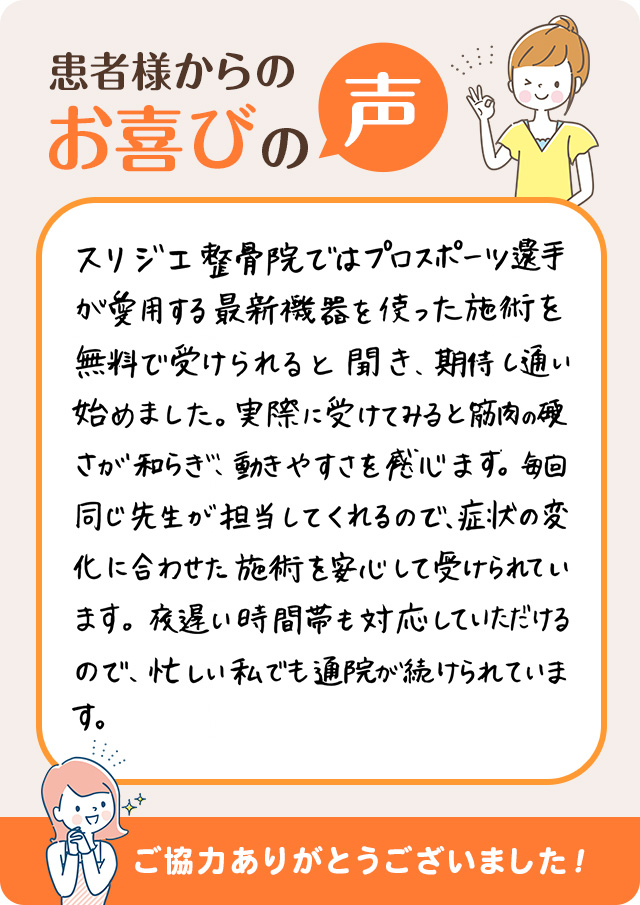 患者様からの
お喜びの
声
スリジエ整骨院ではプロスポーツ選手
が愛用する最新機器を使った施術を
無料で受けられると聞き、期待し通い
始めました。実際に受けてみると筋肉の硬
さが和らぎ、動きやすさを感じます。毎回
同じ先生が担当してくれるので、症状の変
化に合わせた施術を安心して受けられてい
ます。夜遅い時間帯も対応していただける
ので、忙しい私でも通院が続けられていま
す。
ご協力ありがとうございました!